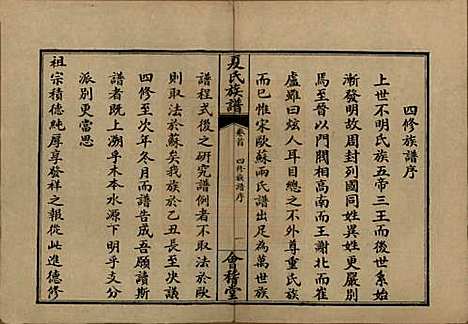 四修族譜序
上世不明氏族五帝三王而後世系始
漸發明故周封列國同姓異姓更事司
馬而至晉以門閥相高南而王謝北而崔
盧雖曰炫人耳目總之不外尊重氏族
而已惟宋歐蘇兩氏譜出足為萬世族
夏氏族譜
卷首
四修族譜序
會稽堂
譜程式後之研究譜例者不取法於歐
則取法於蘇矣我族於乙丑長至央議
四修至次年冬月而譜告成吾願讀斯
譜者既上溯乎木本水源下明乎支分
派別更當思
祖宗積德純厚享發祥之報從此進德修